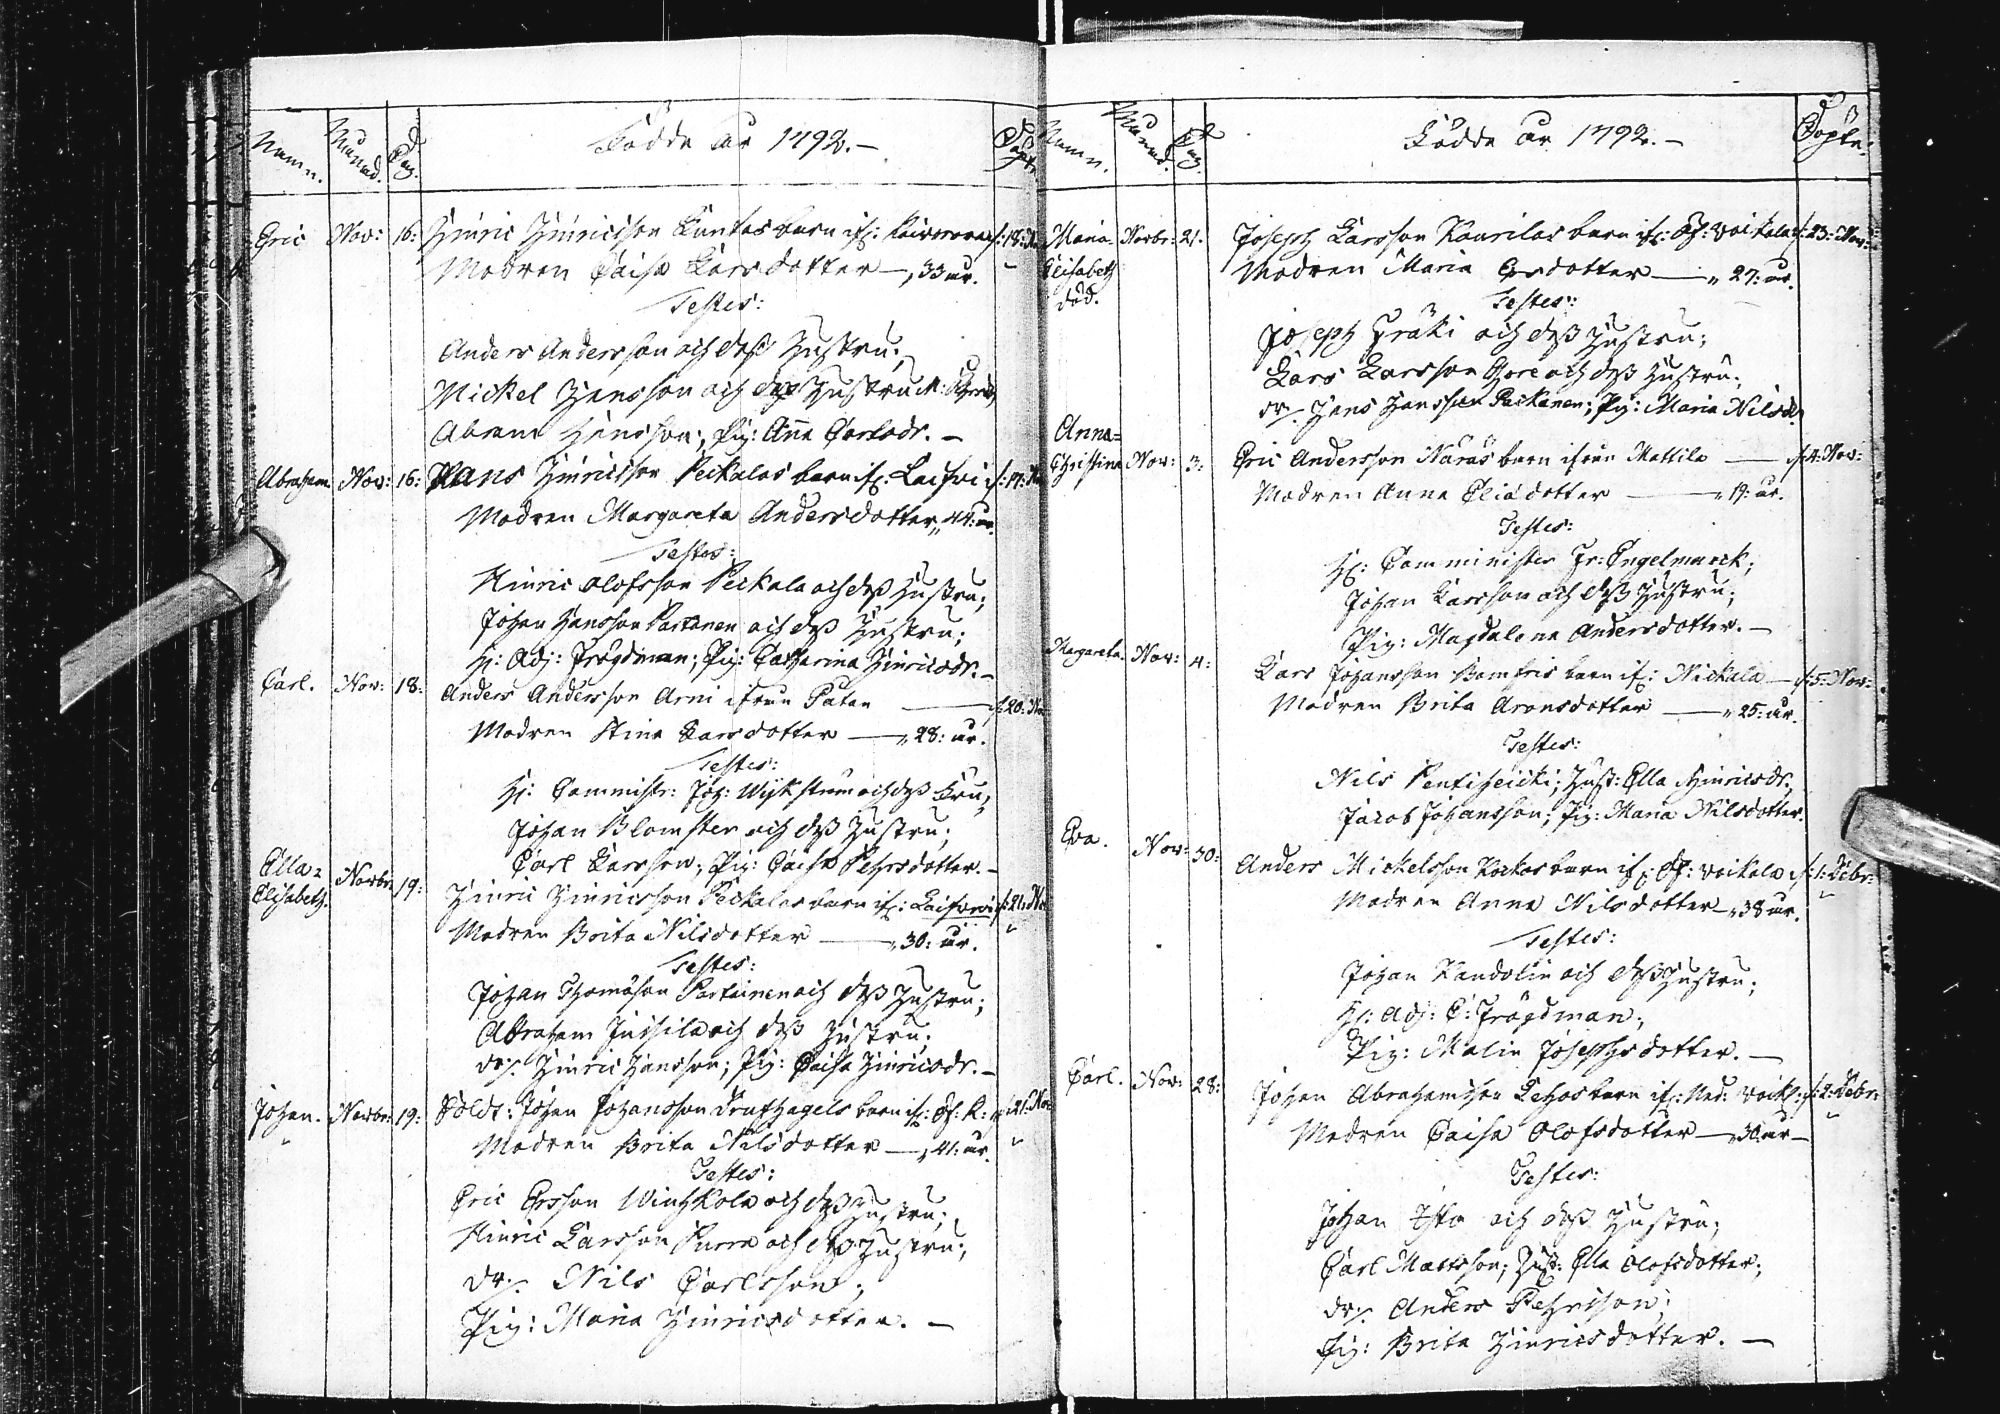 Namn.
Månad.
Dag.
Födde år 1792.—
Döpte.
Eric Nov: 16: Hinric Hinricsson barn
Modren Caisa Larsdotter —„ 33 år.
Testes:
Anders Andersson och dess Hustru;
Mickel Hansson och dess Hustru
Abram Hansson; Pig: Anna Carlsdr. —
Abraham Nov: 16: Hans Hinricsson Peckalas barn if:
Modren Margareta Andersdotter „ 44: år.
Testes:
Hinric Olofsson Peckala och dess Hustru;
Johan Hansson Partanen och dess Hustru;
H: Adj: Frögdman; Pig: Catharina Hinricsdr. —
Carl. Nov: 18: Anders Andersson Arni ifrån — d: 20: No
Modren Stina Larsdotter —„ 28: år.
Testes:
H: Comministr: Joh: och dess Fru;
Johan Blomster och dess Hustru;
Carl Larsson; Pig: Caisa Pehrsdotter. —
Ella=
Elisabeth. Novbr: 19: Hinric Hinricsson Peckalas barn if: d: 21: No
Modren Brita Nilsdotter —„ 30: år.
Testes:
Johan Thomasson Partainen och dess Hustru;
Abraham Jussila och dess Hustru;
dr: Hinric Hansson; Pig: Caisa Hinricsdr. —
Johan. Novbr: 19: Soldt: Johan Johansson barn if: 21: Nov
Modren Brita Nilsdotter —„ 41: år.
Testes:
Eric Ersson och dess Hustru;
Hinric Larsson Purra och dess Hustru;
dr: Nils Carlsson;
Pig: Maria Hinricsdotter. —
Namn.
Månad.
Dag.
Födde år 1792. —
Döpte.
Maria
Elisabeth
död.
Novbr: 21. Joseph Larsson Kaurilas barn if: Öf: Voikala d: 23: Nov:
Modren Maria Ersdotter —„ 27: år.
Testes:
Joseph Fräki och dess Hustru;
Lars Larsson och dess Hustru;
dr: Hans Hansson Packanen; Pig: Maria Nilsdr
Anna=
Christina Nov: 3: Eric Andersson barn ifrån Mattila — d: 4: Nov:
Modren Anna Eliædotter —„ 19: år.
Testes:
H: Comminister Fr: Engelmarck;
Johan Larsson och dess Hustru;
Pig: Magdalena Andersdotter. —
Margareta. Nov: 4: Lars Johansson barn if: Nickala — d: 5: Nov:
Modren Brita Aronsdotter —„ 25: år.
Testes:
Nils Pentiheicki; Hust: Ella Hinricsdr;
Jacob Johansson; Pig: Maria Nilsdotter.
Eva. Nov: 30: Anders Mickelsson barn if: Öf: Voikala d: 1: Debr:
Modren Anna Nilsdotter —„ 38 år.
Testes:
Johan Kandolin och dess Hustru;
H: Adj: E: Frögdman;
Pig: Malin Josephsdotter. —
Carl. Nov: 28: Johan Abrahamsson barn if: Ned: Voikl: d: 2: Debr:
Modren Caisa Olofsdotter —„ 30 år —
Testes:
Johan och dess Hustru;
Carl Mattsson; Hust: Ella Olofsdotter;
dr: Anders Pehrsson;
Pig: Brita Hinricsdotter. —